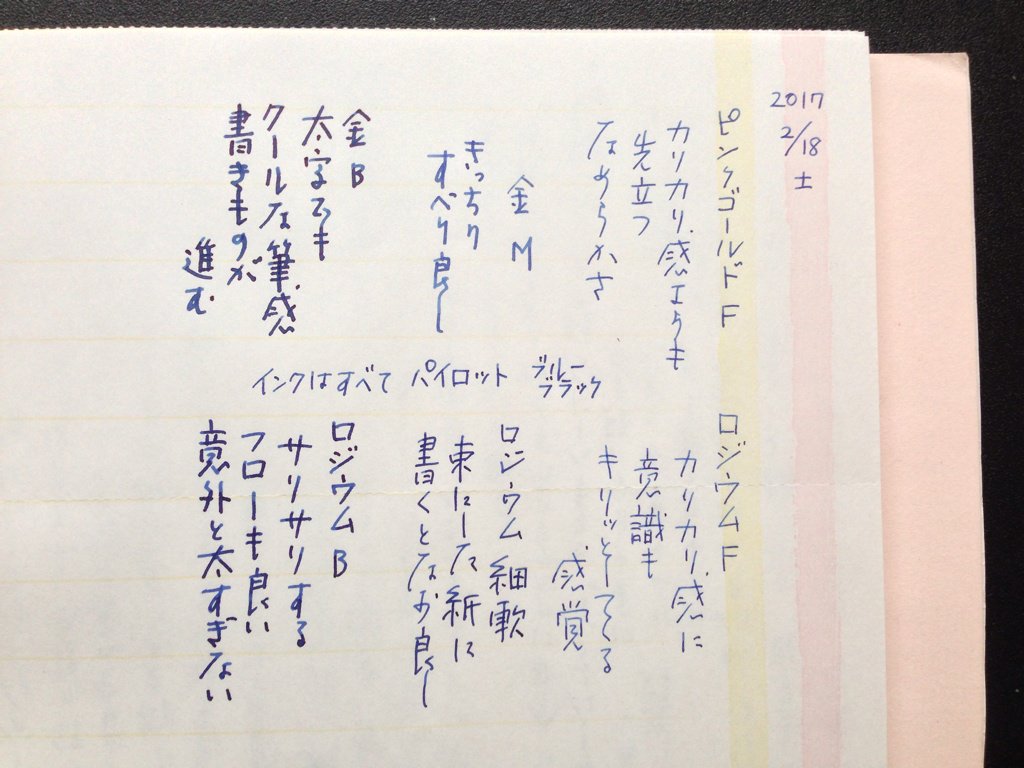 2017
2/18
土
ピンクゴールド F
カリカリ感よりも
先立つ
なめらかさ
金 M
きっちり
すべり良し
金 B
太字でも
クールな筆感
書きものが
進む
インクはすべて パイロット ブルーブラック
ロジウム F
カリカリ感に
意識も
キリッとしてくる
感覚
ロジウム 細軟
束にした紙に
書くとなお良し
ロジウム B
サリサリする
フローも良い
意外と太すぎない